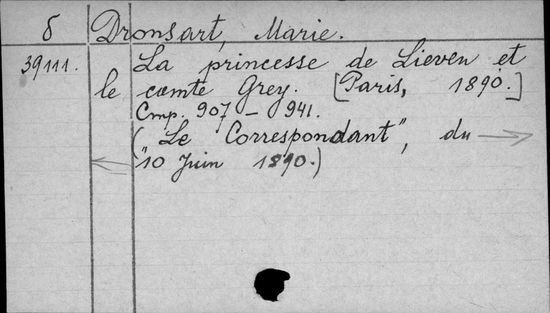 δ Dronsart, Marie.
39111. La princesse de Lieven et
le comte Grey. [Paris, 1890.]
Стр. 907 – 941.
("Le Correspondant", du
10 Juin 1890.)